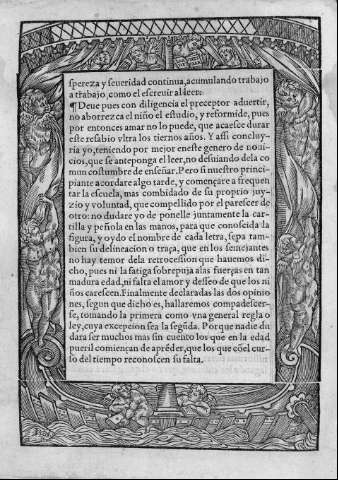 spereza y seueridad continua, acumulando trabajo
a trabajo, como el escreuir al leer.
¶ Deue pues con diligencia el preceptor aduertir,
no aborrezca el niño el estudio, y reformide, pues
por entonces amar no lo puede, que acaesce durar
este resabio vltra los tiernos años. Y assi concluy-
ria yo, teniendo por mejor en este genero de noui-
cios, que se anteponga el leer, no desuiando dela co
mun costumbre de enseñar. Pero si nuestro princi-
piante acordare algo tarde, y començare a frequen
tar la escuela, mas combidado de su proprio juy-
zio y voluntad, que compellido por el parescer de
otro: no dudare yo de ponelle juntamente la car-
tilla y peñola en las manos, para que conoscida la
figura, y oydo el nombre de cada letra, sepa tam-
bien su delineacion o traça, que en los semejantes
no hay temor dela retrocession que hauemos di-
cho, pues ni la fatiga sobrepuja alas fuerças en tan
madura edad, ni falta el amor y desseo de que los ni
ños carescen. Finalmente declaradas las dos opinio
nes, segun que dicho es, hallaremos compadescer-
se, tomando la primera como vna general regla o
ley, cuya excepcion sea la segūda. Porque nadie du
dara ser muchos mas sin cuento los que en la edad
pueril comiençan de aprēder, que los que cōel cur-
so del tiempo reconoscen su falta.